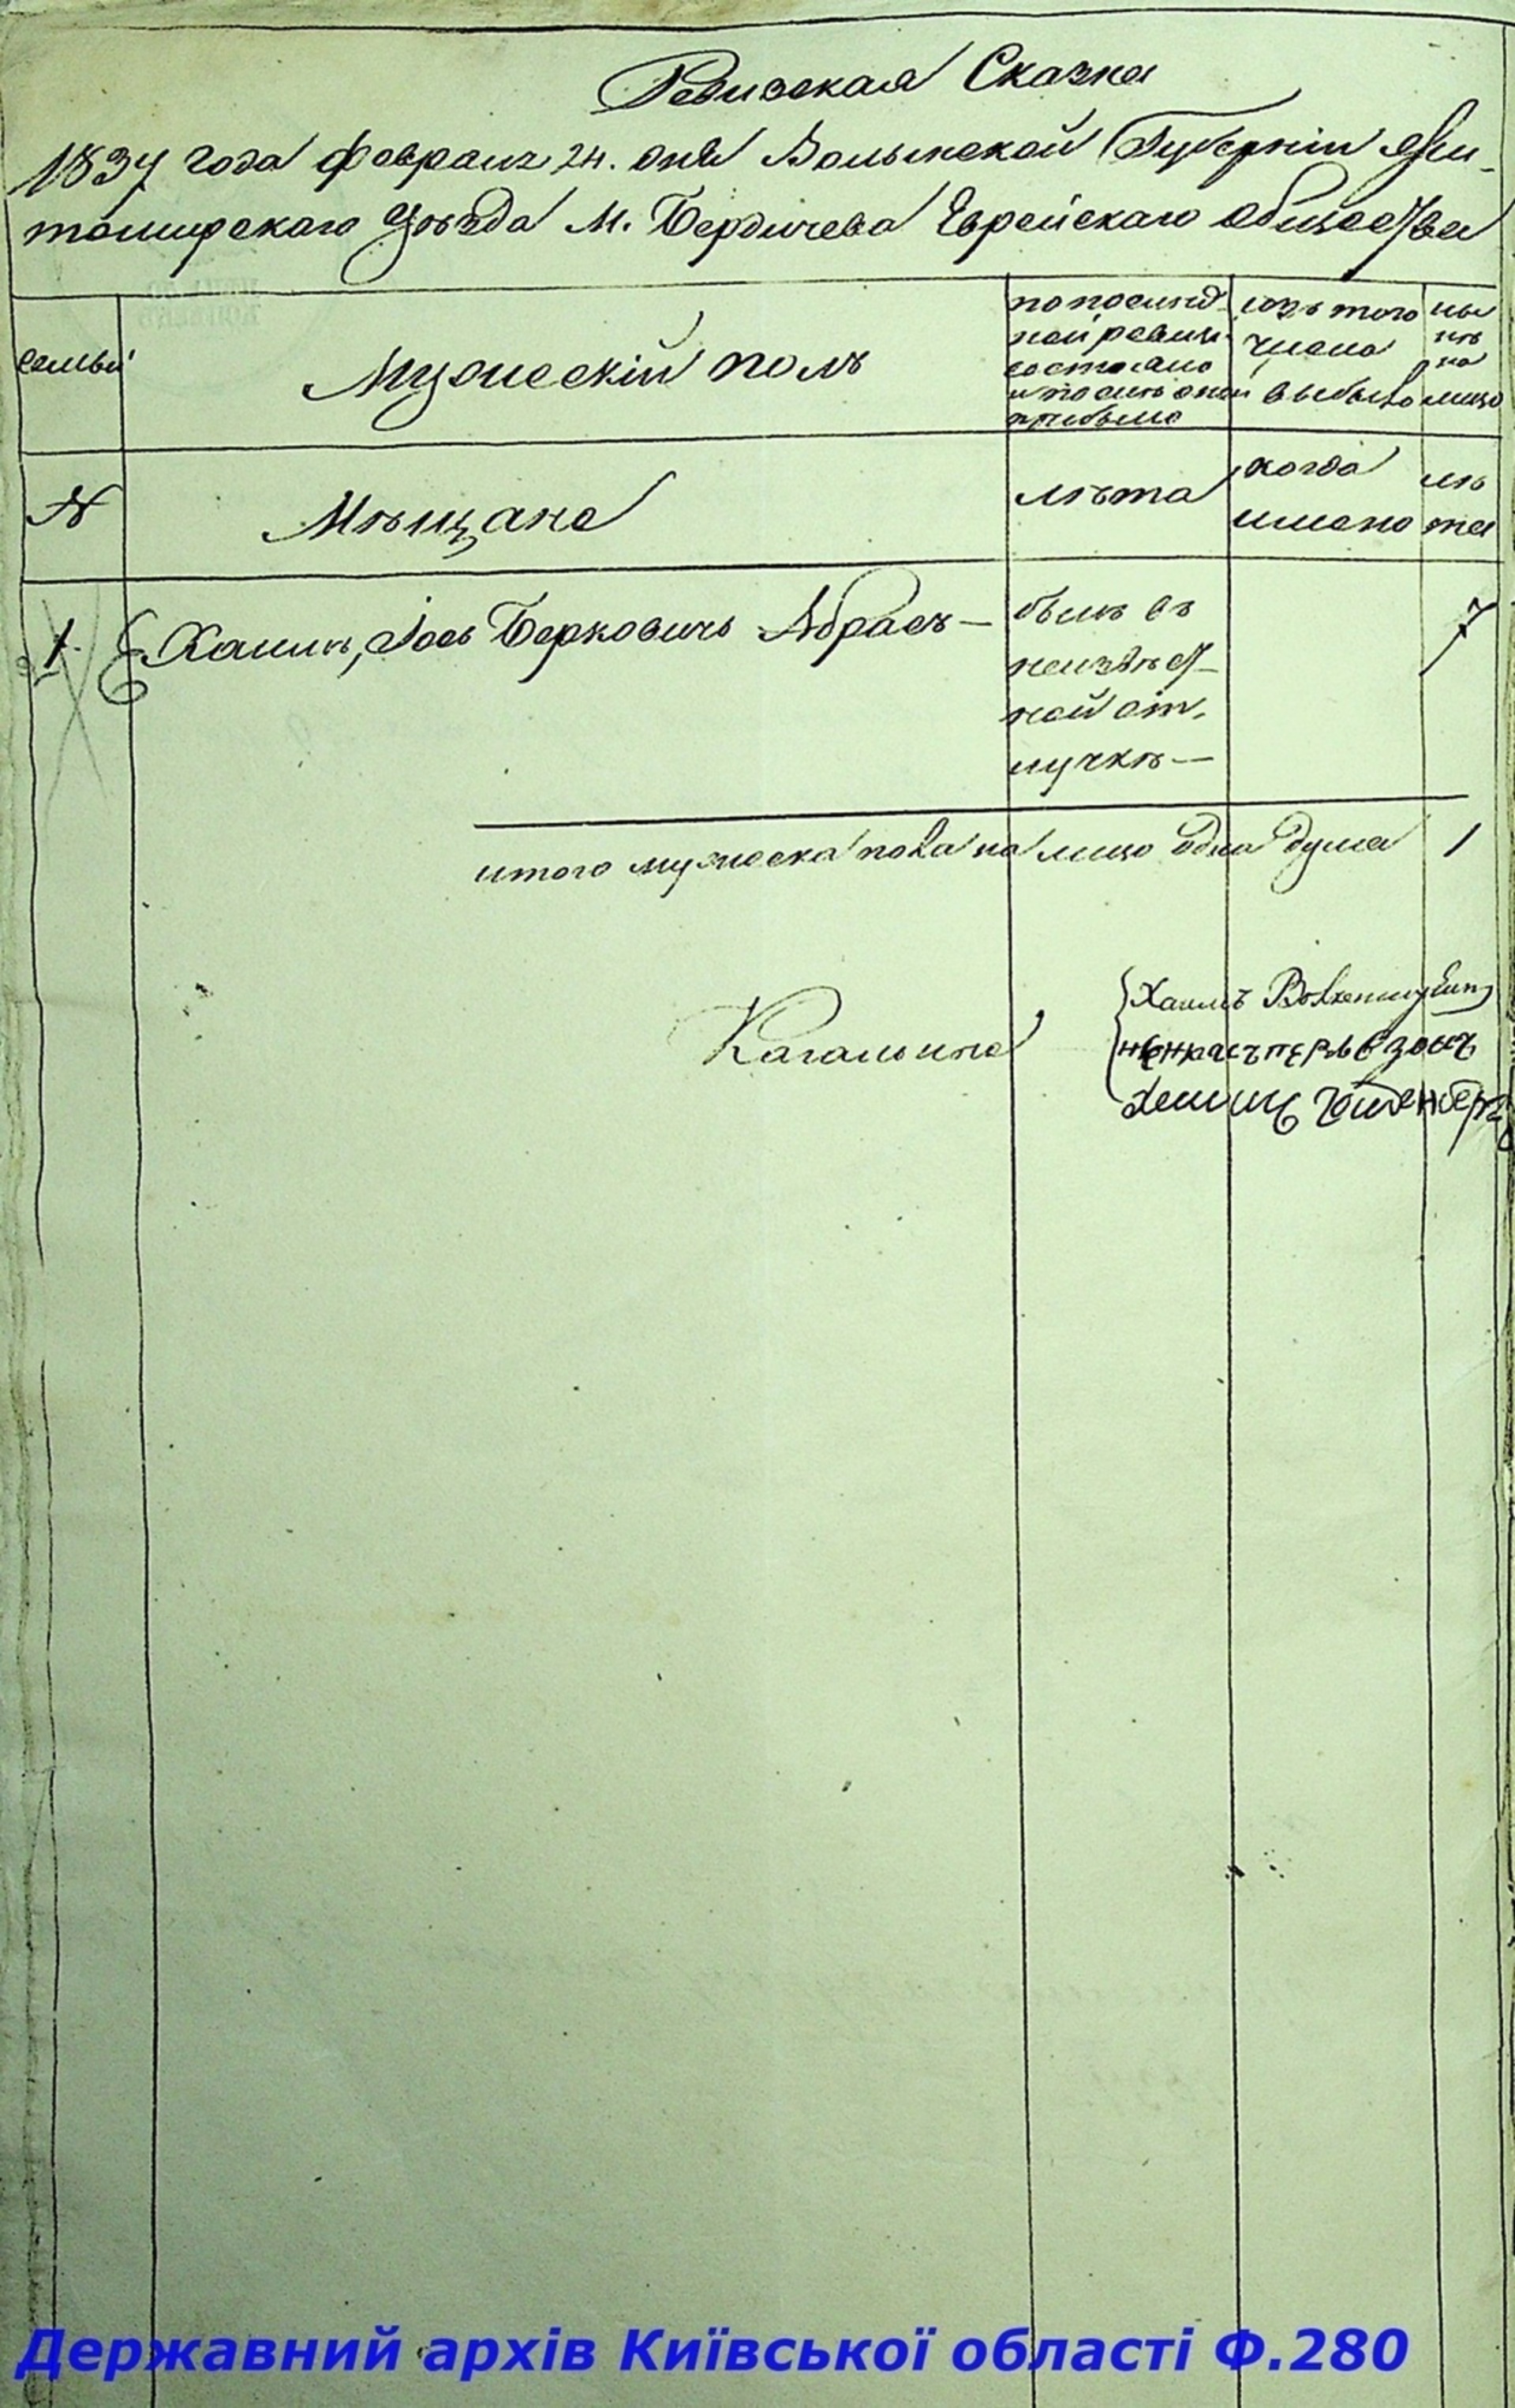 Ревизская Сказка
1837 года февраля 24. дня Волынской Губерніи Жи-
томирскаго Уѣзда М. Бердичева Еврейскаго общества
семьи
Мужескій полъ
по послѣд-
ней ревизіи
состояло
и послѣ оной
прибыло
изъ того
числа
выбыло
ны
нѣ
на
лицо
№
Мѣщане
лѣта
когда
имено
лѣ
та
1.
Хаимъ, Іось Берковичь Абрась —
былъ въ
неизвѣст-
ной от-
лучкѣ —
7
итого мужеска пола на лицо одна душа 1
Кагальные
Хаимъ
Державний архів Київської області Ф.280